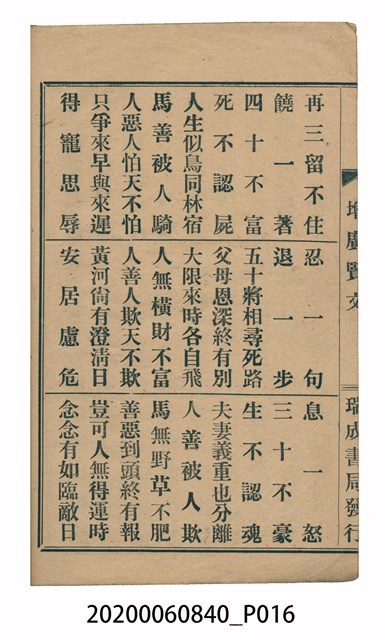 增廣賢文
瑞成書局發行
再三留不住
忍一句
息一怒
饒一著
退一步
三十不豪
四十不富
五十將相尋死路
生不認魂
死不認屍
父母恩深終有別
夫妻義重也分離
人生似鳥同林宿
大限來時各自飛
人善被人欺
馬善被人騎
人無橫財不富
馬無野草不肥
人惡人怕天不怕
人善人欺天不欺
善惡到頭終有報
只爭來早與來遲
黃河尙有澄清日
豈可人無得運時
得寵思辱
安居慮危
念念有如臨敵日
20200060840_P016